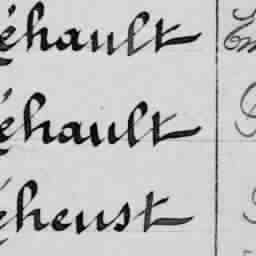 éhault
éhault
éheust